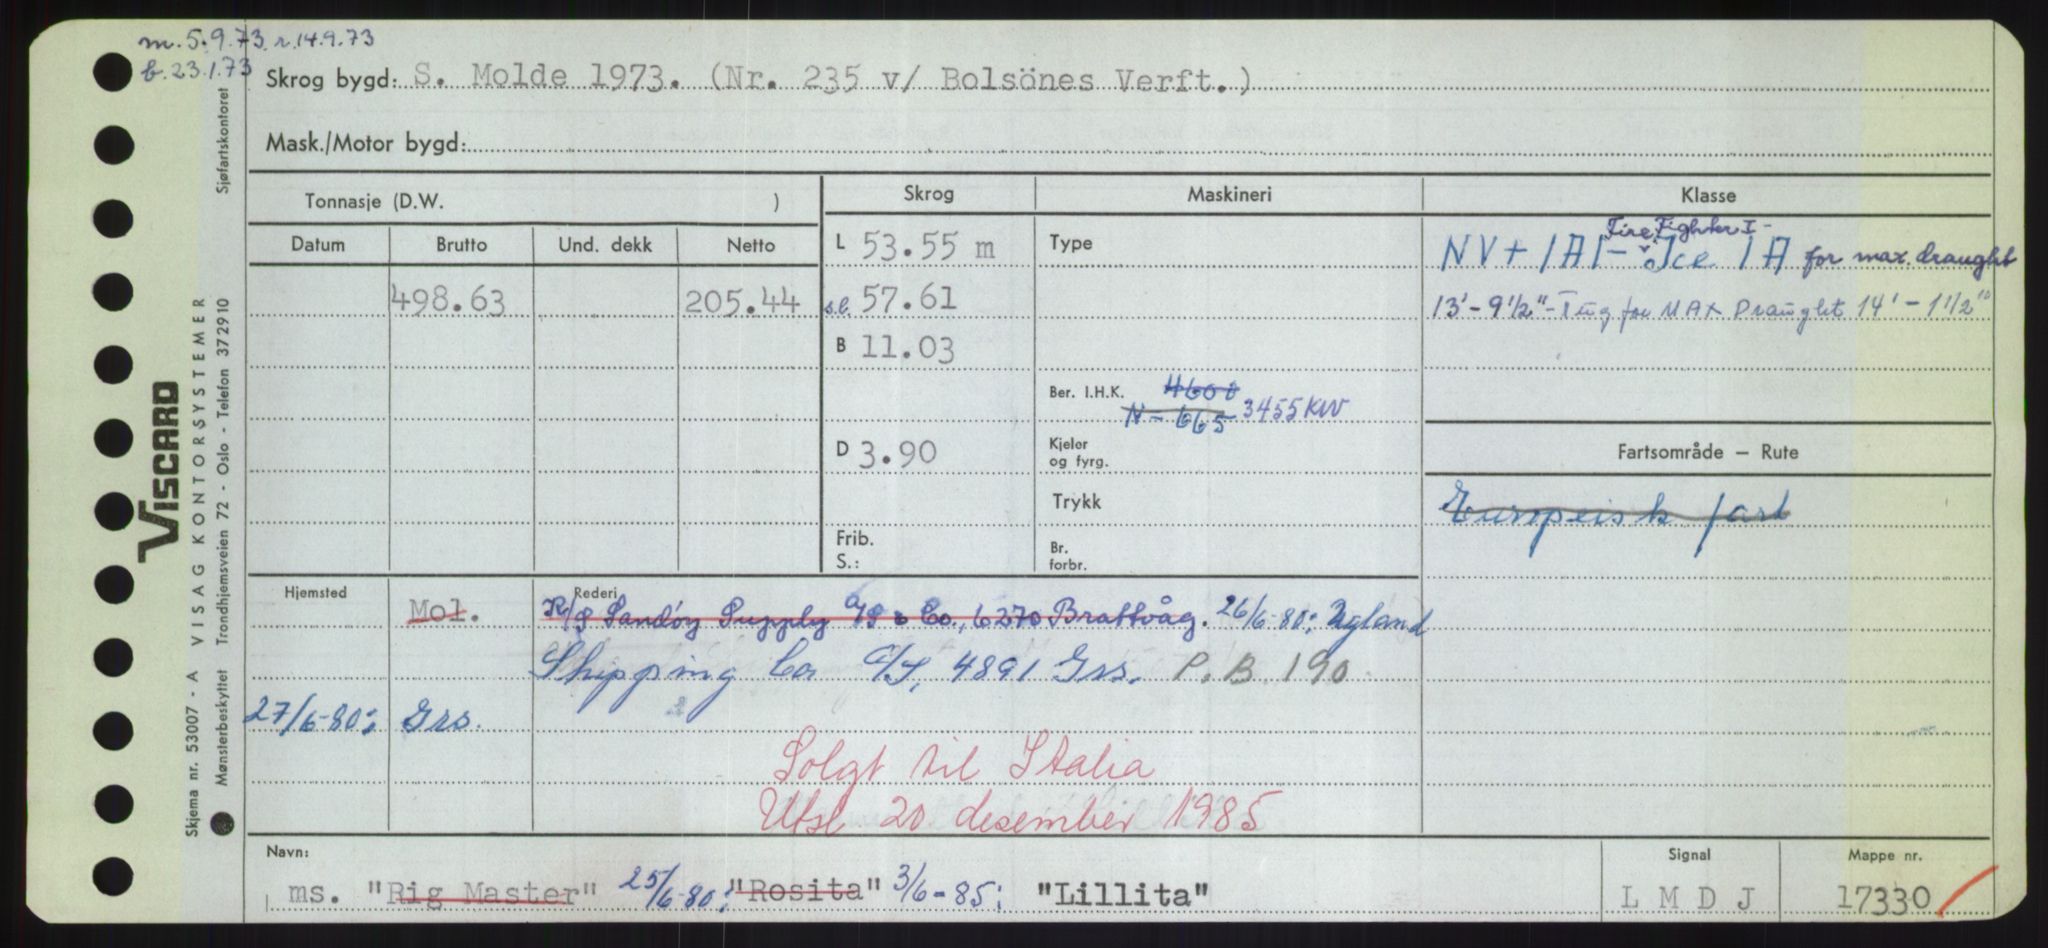 m. 5.9.73 r. 14.9.73
b. 23.1.73
Skrog bygd: S. Molde 1973. (Nr. 235 v/ Bolsönes Verft.)
Mask./Motor bygd:
Tonnasje (D.W. )
Skrog
Maskineri
Klasse
Datum
Brutto
Und. dekk
Netto
L 53.55 m
Type
Fire Fighter I -
NV + 1A1 - Ice 1A for max. draught
498.63
205.44
s.l. 57.61
13' - 9 1/2" - Tug for MAX Draught 14' - 1 1/2"
B 11.03
Ber. I.H.K. 4600
N - 665 3455 KW
D 3.90
Kjeler
og fyrg.
Fartsområde — Rute
Trykk
Europeisk fart
Frib.
S.:
Br.
forbr.
Hjemsted
Mol.
Rederi
K/S Sandøy Supply A/S & Co., 6270 Brattvåg. 26/6-80: Ugland
Shipping Co A/S, 4891 Grs. P.B. 190
27/6-80: Grs.
Solgt til Italia
Utsl 20 desember 1985
Navn:
ms. "Rig Master" 25/6-80: "Rosita" 3/6-85: "Lillita"
Signal
L M D J
Mappe nr.
17330
VISCARD
Skjema nr. 53007 - A VISAG KONTORSYSTEMER
Mønsterbeskyttet Trondhjemsveien 72 - Oslo - Telefon 372910
Sjøfartskontoret